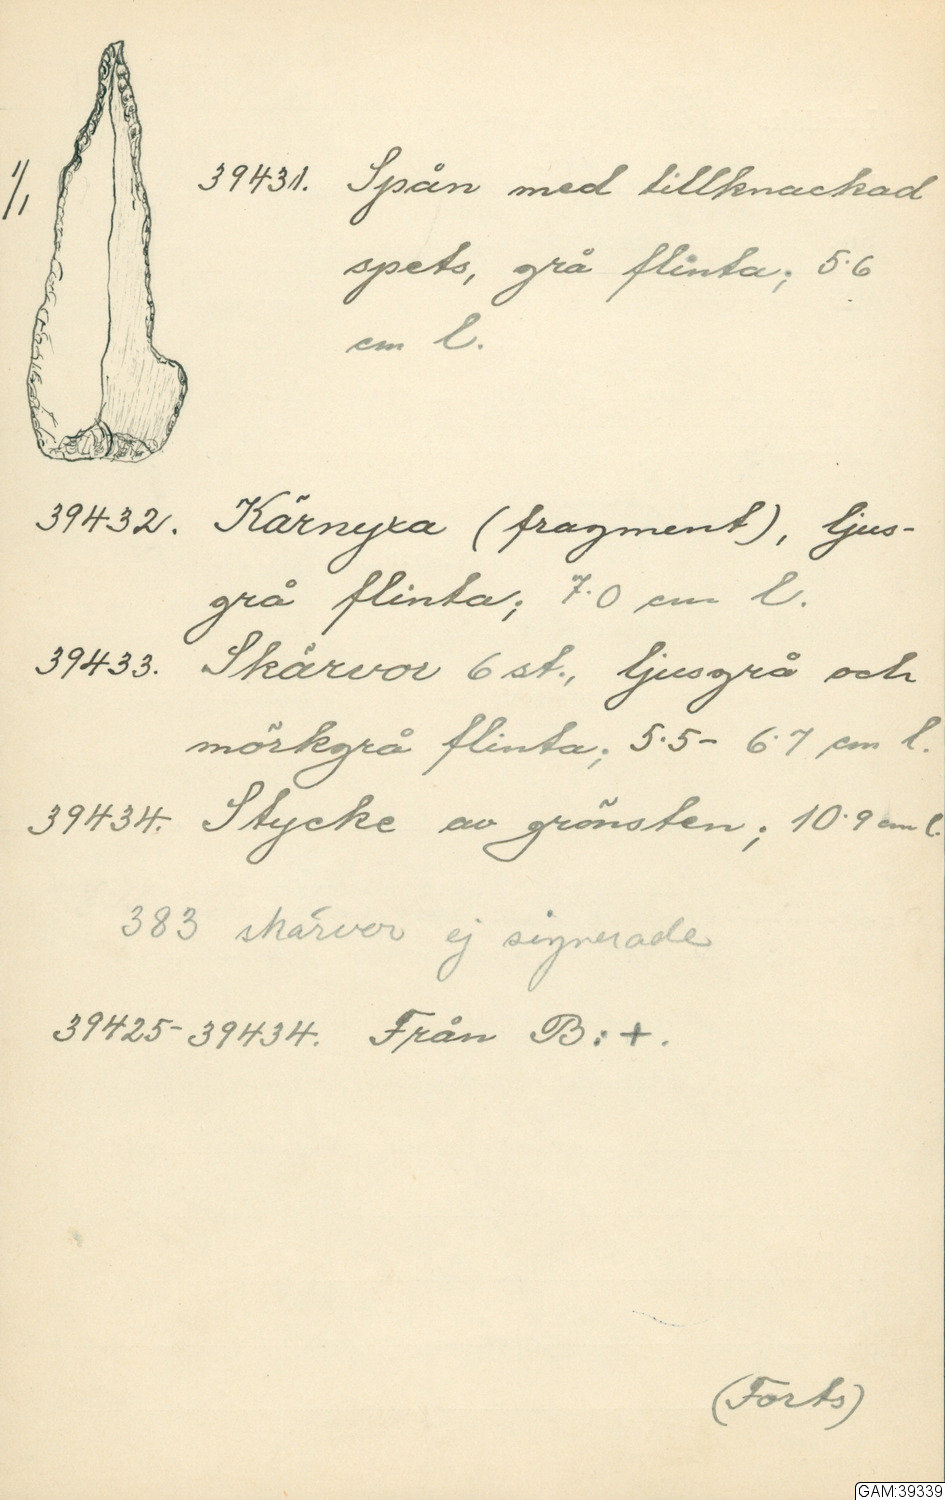 1/1
39431. Spån med tillknackad
spets, grå flinta; 5.6
cm l.
39432. Kärnyxa (fragment), ljus-
grå flinta; 7.0 cm l.
39433. Skärvor 6 st., ljusgrå och
mörkgrå flinta; 5.5- 6.7 cm l.
39434. Stycke av grönsten; 10.9 cm l.
383 skärvor ej signerade
39425-39434. Från B:+.
(Forts)
GAM:39339